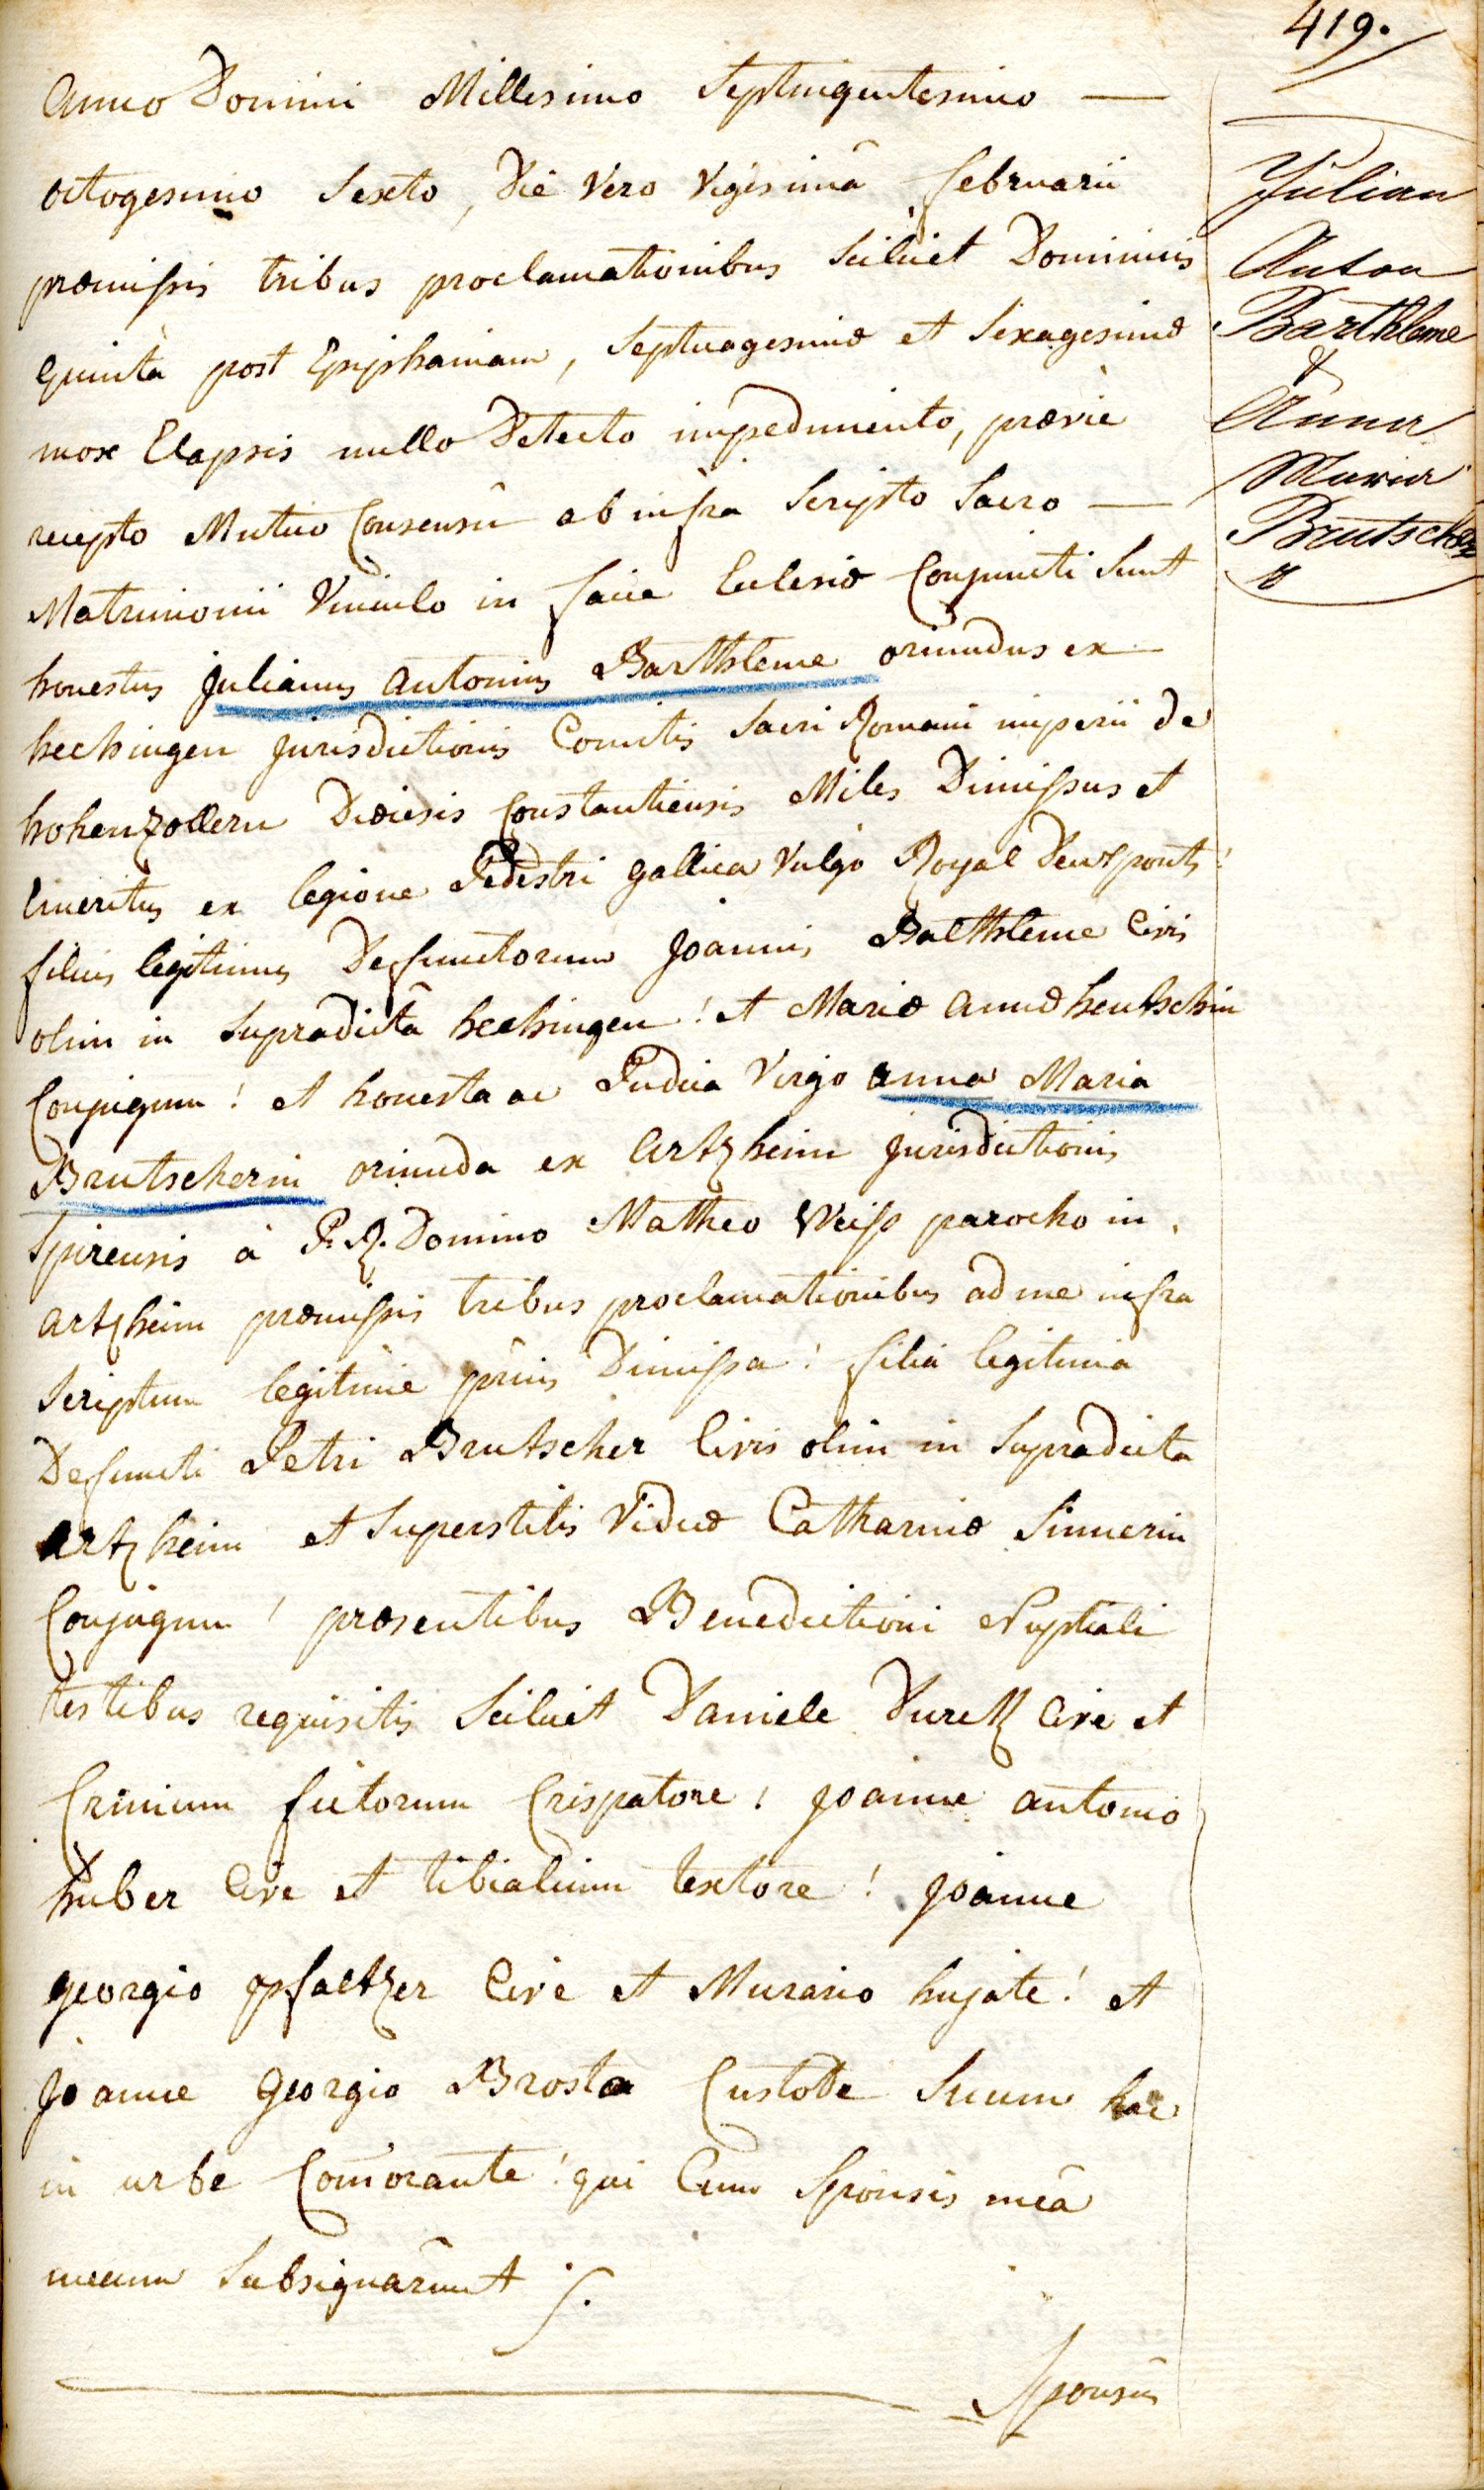 419.
Anno Domini Millesimo Septingentesimo —
octogesimo Sexto, Die Vero Vigesimâ februarii
præmissis tribus proclamationibus Scilicet Dominicis
quintâ post Epiphaniam, Septuagesimæ et Sexagesimæ
mox Elapsis nullo Detecto impedimento, prævie
recepto Mutuo Consensû ab infra Scripto Sacro —
Matrimonii Vinculo in facie Eclesiæ Conjuncti Sunt
honestus Julianus Antonius Barthleme oriundus ex
hechingen Jurisdictionis Comitis Sacri Romani imperii de
hohenzollern Diœcesis Constantiensis Miles Dimissus et
Emeritus ex legione Pedestri gallica Vulgo Royal Deuxponts!
filius legitimus Defunctorum Joannis Balthleme Civis
olim in Supradictâ hechingen! et Mariæ annæ heutschin
Conjugum! et honesta ac Pudica Virgo anna Maria
Brutscherin oriunda ex Artzheim Jurisdictionis
Spirensis à P. R. Domino Matheo Weiss parocho in
artzheim præmissis tribus proclamationibus ad me infra
Scriptum legitimè priùs Dimissa! filia legitima
Defuncti Petri Brutscher Civis olim in Supradicta
artzheim et Superstitis Viduæ Catharinæ Simmerin
Conjugum! præsentibus Benedictioni Nuptiali
testibus requisitis Scilicet Daniele Duretz Cive et
Crinium fictorum Crispatore! Joanne antonio
huber Cive et tibialium textore! Joanne
georgio pfaltzer Cive et Murario hujate! et
Joanne Georgio Brosta Custode Suum hac
in urbe Com̄orante! qui Cum Sponsis meâ
mecum Subsignârunt ſ.
Sponsus
Julian
Anton
Barthleme
&
Anna
Maria
Brutscher